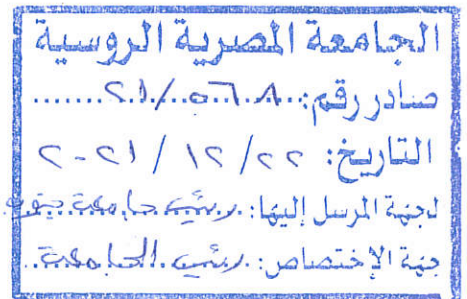 الجامعة المصرية الروسية
صادر رقم: ٢١/٥٦٠٨
التاريخ: ٢٢ / ١٢ / ٢٠٢١
لجهة المرسل إليها: رئيس جامعة
جهة الإختصاص: رئيس الجامعة